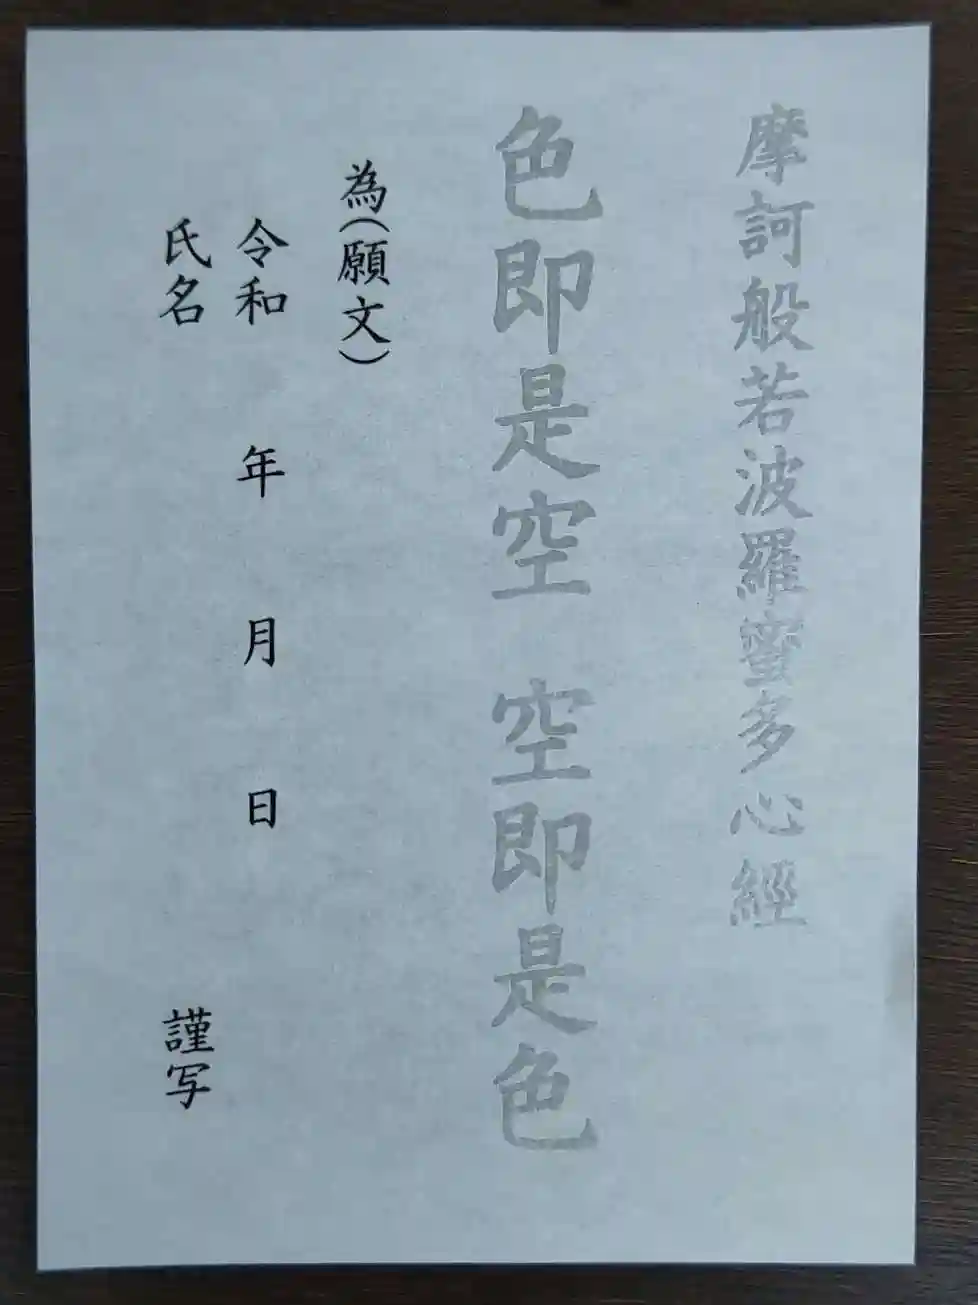 摩訶般若波羅蜜多心經
色即是空 空即是色
為(願文)
令和 年 月 日
氏名 謹写